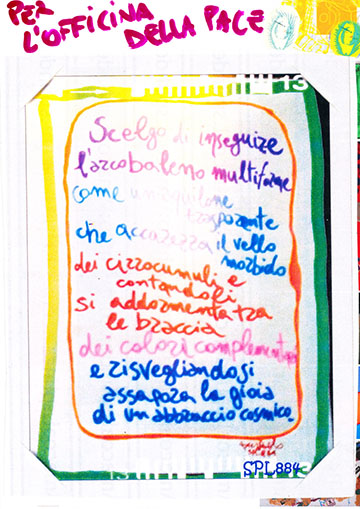 PER
L'OFFICINA
DELLA PACE
13
Scelgo di inseguire
l'arcobaleno multiforme
come un aquilone
trasparente
che accarezza il vello
morbido
dei cirrocumuli e
contandosi
si addormenta tra
le braccia
dei colori complementari
e risvegliandosi
assapora la gioia
di un abbraccio cosmico.
SPL884
13